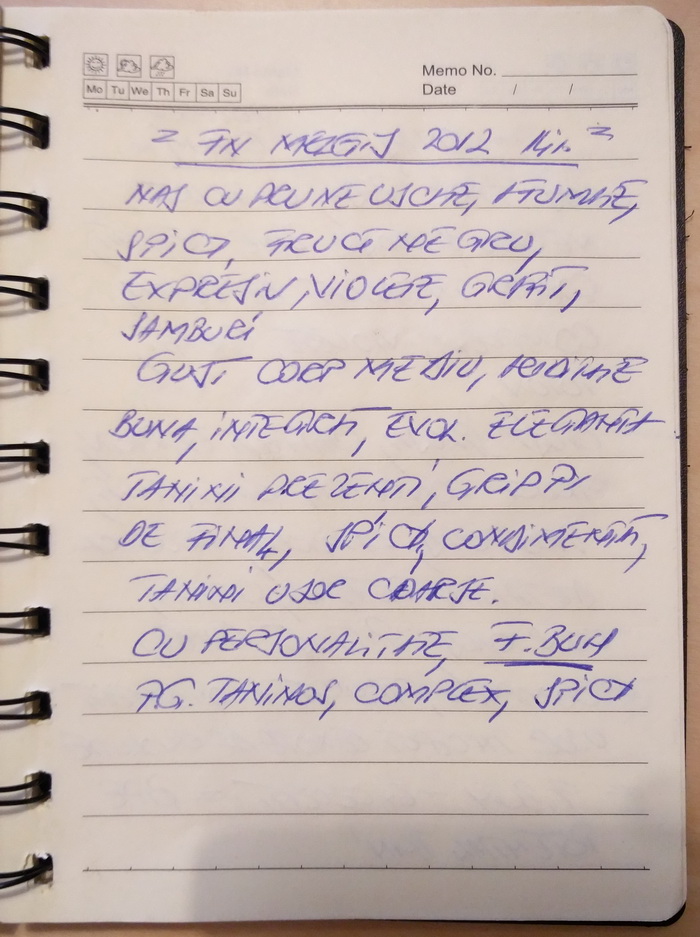 Memo No.
Mo Tu We Th Fr Sa Su
Date / /
2012
NAS CU PRUNE USCATE, AFUMATE,
SPICY, FRUCT NEGRU,
EXPRESIV, VIOLETE, GRAFIT,
SAMBURI
GUST CORP MEDIU, ACIDITATE
BUNA, INTEGRATA, EVOL. ELEGANTA
TANINII PREZENTI, GRIPPY
DE FINAL, SPICY, CONDIMENTAT,
TANINI USOR COARSE.
CU PERSONALITATE, F. BUN
AG. TANINOS, COMPLEX, SPICY